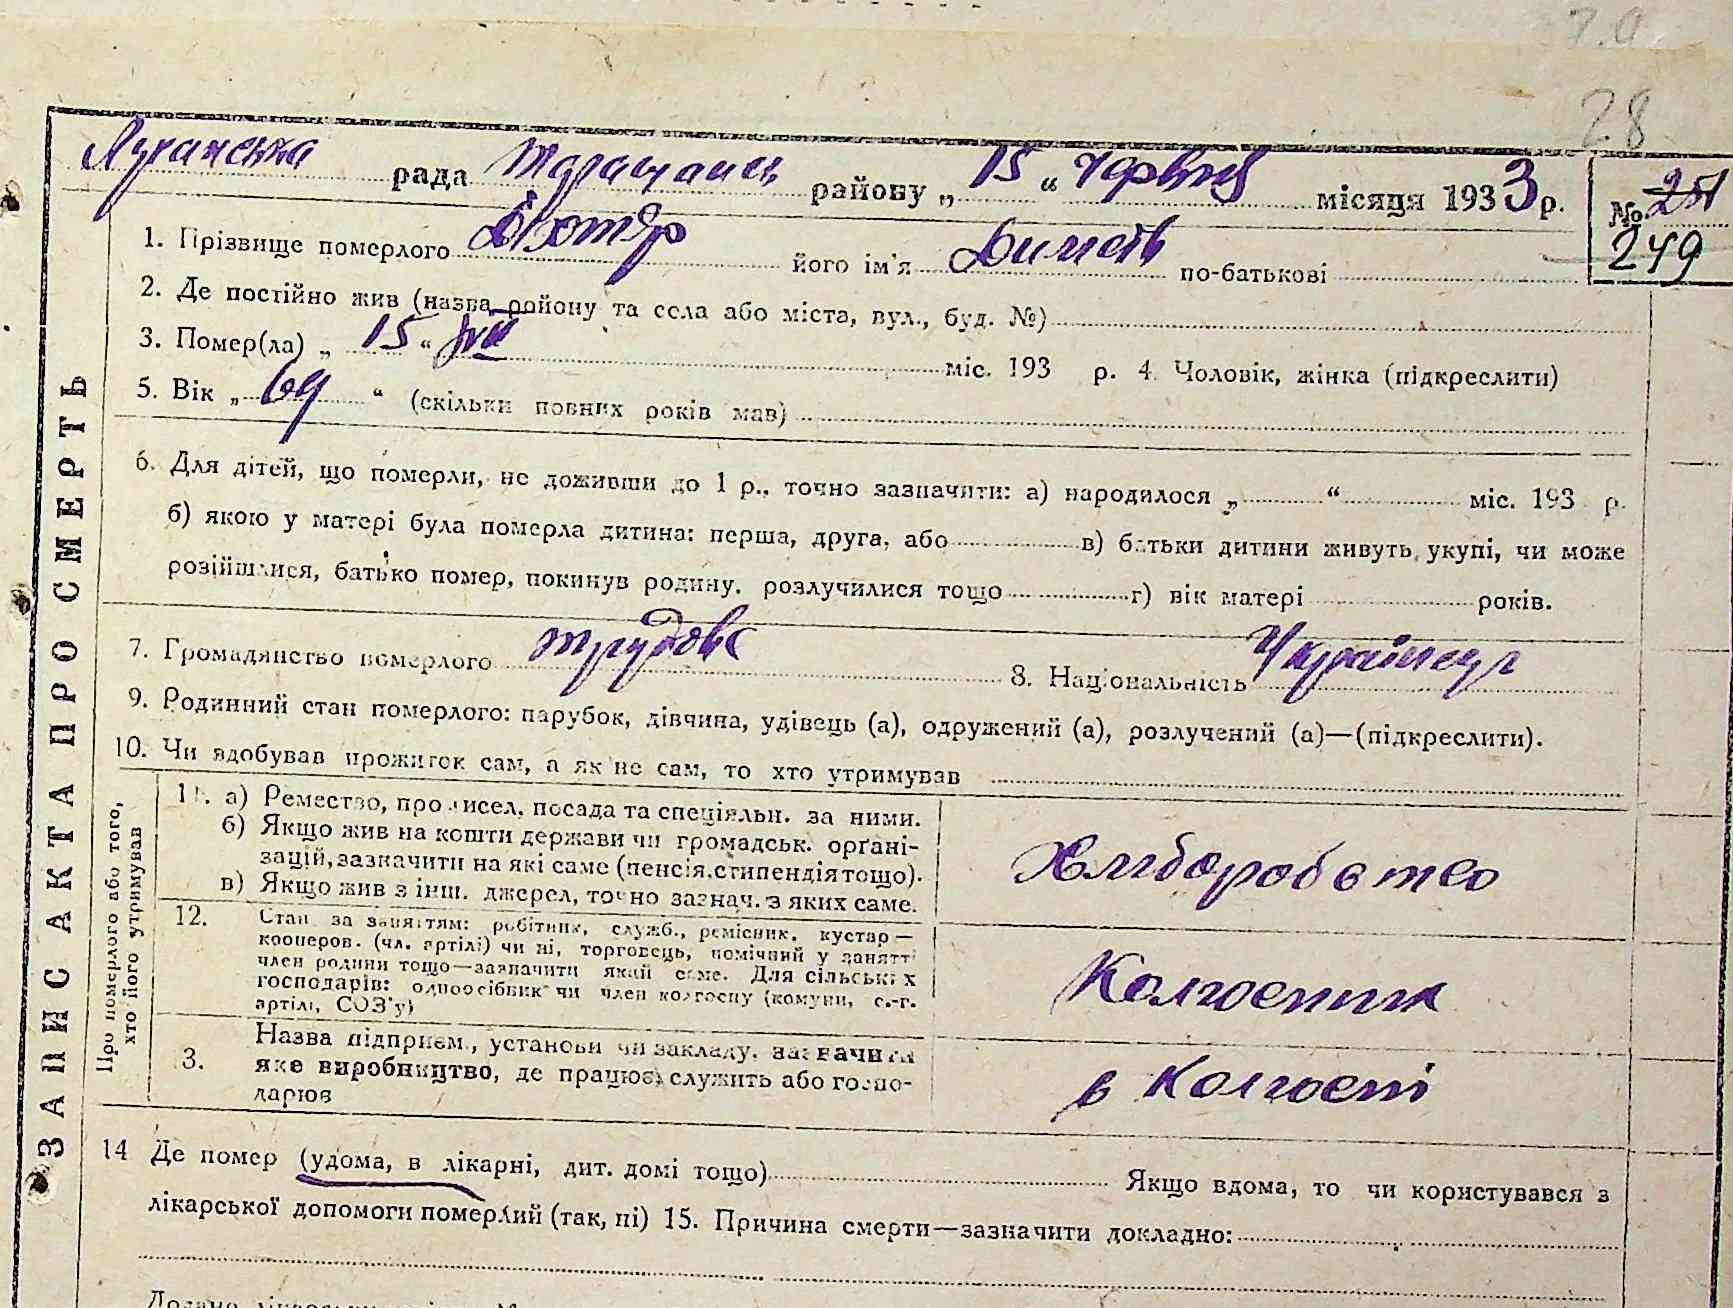 28
Луканська рада Таращанськ району „ 15 “ червня місяця 1933 р.
№ 251
249
1. Прізвище померлого його ім'я по-батькові
2. Де постійно жив (назва району та села або міста, вул., буд. №)
3. Помер(ла) „ 15 “ міс. 193 р. 4. Чоловік, жінка (підкреслити)
5. Вік „ 69 “ (скільки повних років мав)
6. Для дітей, що померли, не доживши до 1 р., точно зазначити: а) народилося „ “ міс. 193 р.
б) якою у матері була померла дитина: перша, друга, або в) батьки дитини живуть укупі, чи може
розійшлися, батько помер, покинув родину, розлучилися тощо г) вік матері років.
7. Громадянство померлого трудове 8. Національність Українець
9. Родинний стан померлого: парубок, дівчина, удівець (а), одружений (а), розлучений (а)—(підкреслити).
10. Чи здобував прожиток сам, а як не сам, то хто утримував
ЗАПИС АКТА ПРО СМЕРТЬ
Про померлого або того, хто його утримував
11. а) Ремество, промисел, посада та спеціяльн. за ними.
б) Якщо жив на кошти держави чи громадськ. орґані-
зацій, зазначити на які саме (пенсія, стипендія тощо).
в) Якщо жив з інш. джерел, точно зазнач. з яких саме.
Хліборобство
12. Стан за заняттям: робітник, служб., ремісник, кустар—
кооперов. (чл. артілі) чи ні, торговець, помічний у занятті
член родини тощо—зазначити який саме. Для сільських
господарів: одноосібник чи член колгоспу (комуни, с.-г.
артілі, СОЗ'у)
Колгоспник
3. Назва підприєм., установи чи закладу, зазначити
яке виробництво, де працює, служить або госпо-
дарює
в Колгоспі
14 Де помер (удома, в лікарні, дит. домі тощо) Якщо вдома, то чи користувався з
лікарської допомоги померлий (так, ні) 15. Причина смерти—зазначити докладно: